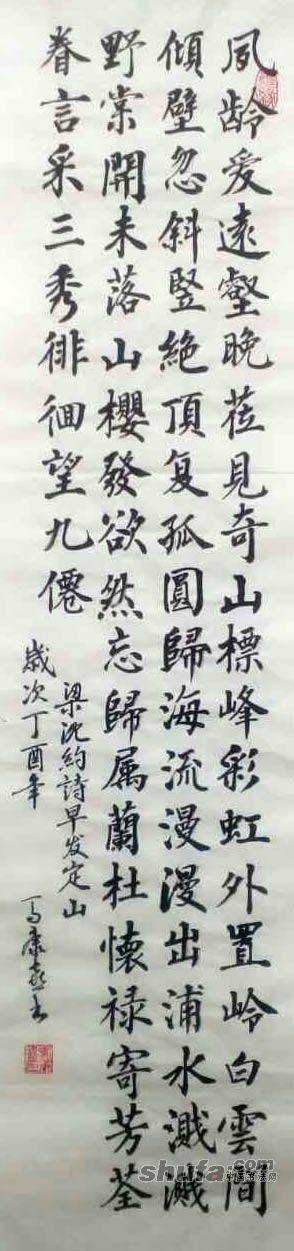 夙龄爱遠壑晚莅見奇山標峰彩虹外置岭白雲間
傾壁忽斜竪絶頂复孤圓歸海流漫漫出浦水溅溅
野棠開未落山櫻發欲然忘歸属蘭杜懷禄寄芳荃
眷言采三秀徘徊望九僊
梁沈約詩早发定山
歲次丁酉年
shufa.com